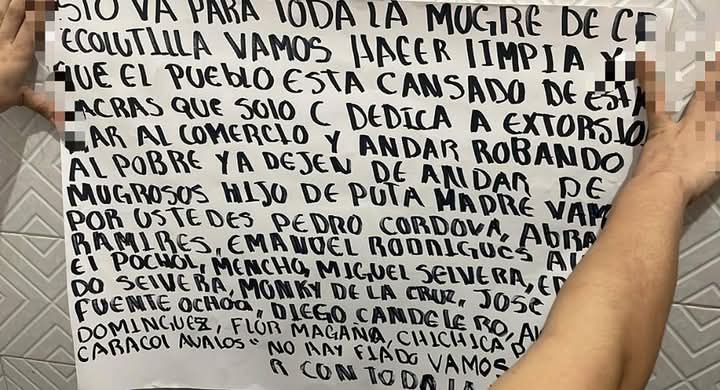 STO VA PARA TODA LA MUGRE DE
ECOLUTILLA VAMOS HACER LIMPIA Y
QUE EL PUEBLO ESTA CANSADO DE
LACRAS QUE SOLO C DEDICA A EXTORSIO
AR AL COMERCIO Y ANDAR ROBANDO
AL POBRE YA DEJEN DE ANDAR DE
MUGROSOS HIJO DE PUTA MADRE VAM
POR USTEDES PEDRO CORDOVA, ABRA
RAMIRES, EMANUEL RODRIGUES
El POCHOL, MENCHO, MIGUEL SELVERA,
DO SELVERA, MONKY DE LA CRUZ, JOSE
FUENTE OCHOA, DIEGO CANDELERO,
DOMINGUEZ, FLOR MAGAÑA, CHICHICA
CARACOL AVALOS" NO HAY FIADO VAMOS
R CON TODA LA